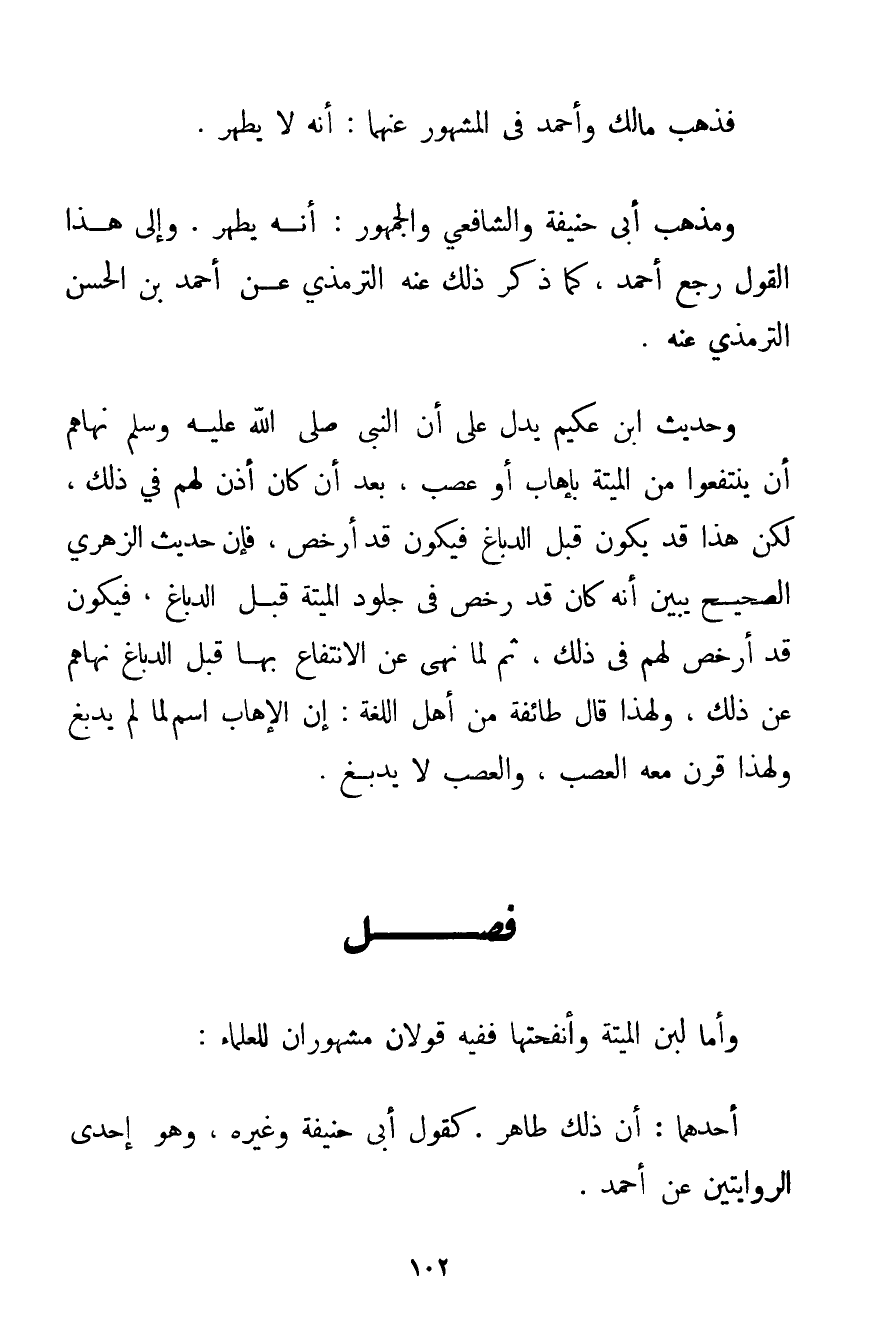 فذهب مالك وأحمد فى المشهور عنهما : أنه لا يطهر .
ومذهب أبى حنيفة والشافعي والجمهور : أنــه يطهر . وإلى هــذا
القول رجع أحمد ، كما ذكر ذلك عنه الترمذي عــن أحمد بن الحسن
الترمذي عنه .
وحديث ابن عكيم يدل على أن النبى صلى الله عليــه وسلم نهاهم
أن ينتفعوا من الميتة بإهاب أو عصب ، بعد أن كان أذن لهم في ذلك ،
لكن هذا قد يكون قبل الدباغ فيكون قد أرخص ، فإن حديث الزهري
الصحيــح يبين أنه كان قد رخص فى جلود الميتة قبــل الدباغ ، فيكون
قد أرخص لهم فى ذلك ، ثم لما نهى عن الانتفاع بهــا قبل الدباغ نهاهم
عن ذلك ، ولهذا قال طائفة من أهل اللغة : إن الإهاب اسم لما لم يدبغ
ولهذا قرن معه العصب ، والعصب لا يدبــغ .
فصــــــل
وأما لبن الميتة وأنفحتها ففيه قولان مشهوران للعلماء :
أحدهما : أن ذلك طاهر . كقول أبى حنيفة وغيره ، وهو إحدى
الروايتين عن أحمد .
١٠٢